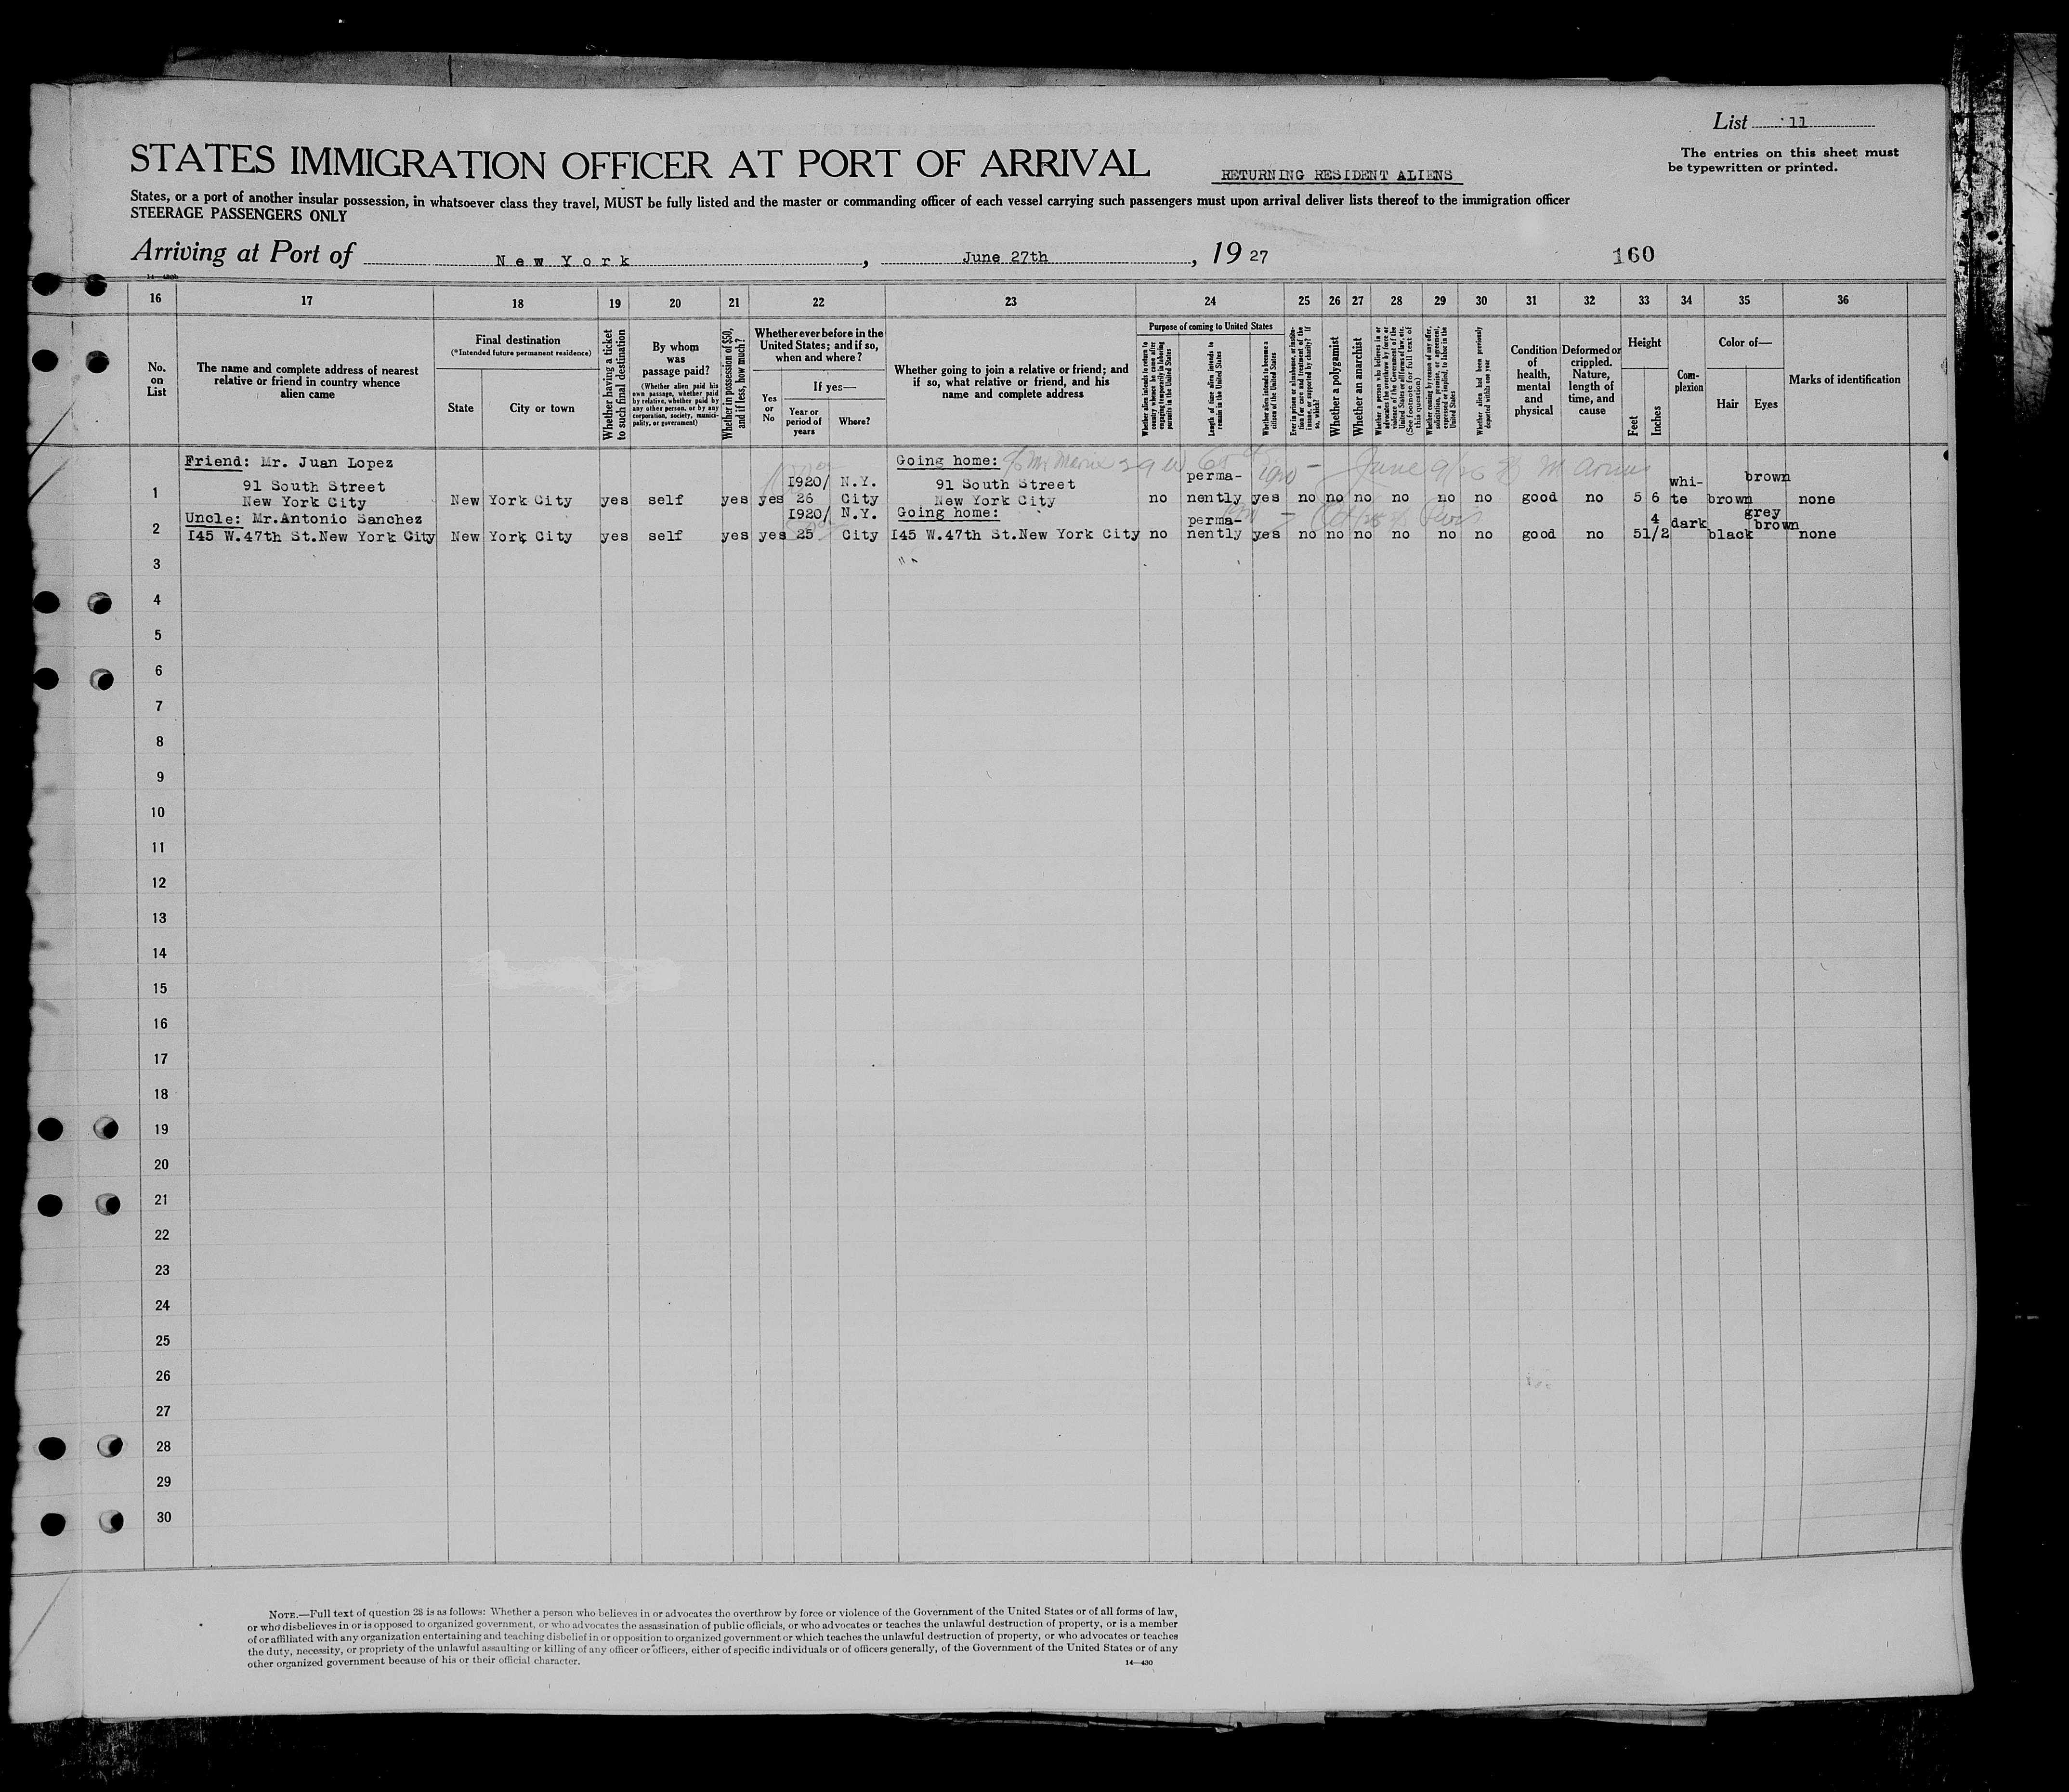 List 11
The entries on this sheet must
be typewritten or printed.
STATES IMMIGRATION OFFICER AT PORT OF ARRIVAL
RETURNING RESIDENT ALIENS
States, or a port of another insular possession, in whatsoever class they travel, MUST be fully listed and the master or commanding officer of each vessel carrying such passengers must upon arrival deliver lists thereof to the immigration officer
STEERAGE PASSENGERS ONLY
Arriving at Port of New York, June 27th, 1927
160
16 17 18 19 20 21 22 23 24 25 26 27 28 29 30 31 32 33 34 35 36
No.
on
List
The name and complete address of nearest
relative or friend in country whence
alien came
Final destination
(*Intended future permanent residence)
State
City or town
Whether having a ticket
to such final destination
By whom
was
passage paid?
(Whether alien paid his
own passage, whether paid
by relative, whether paid by
any other person, or by any
corporation, society, munici-
pality, or government)
Whether in possession of $50,
and if less, how much?
Whether ever before in the
United States; and if so,
when and where?
Yes
or
No
If yes—
Year or
period of
years
Where?
Whether going to join a relative or friend; and
if so, what relative or friend, and his
name and complete address
Purpose of coming to United States
Whether alien intends to return to
country whence he came after
engaging temporarily in laboring
pursuits in the United States
Length of time alien intends to
remain in the United States
Whether alien intends to become a
citizen of the United States
Ever in prison or almshouse, or institu-
tion for care and treatment of the
insane, or supported by charity? If
so, which?
Whether a polygamist
Whether an anarchist
Whether a person who believes in or
advocates the overthrow by force or
violence of the Government of the
United States or all forms of law, etc.
(See footnote for full text of
this question)
Whether coming by reason of any offer,
solicitation, promise, or agreement,
expressed or implied, to labor in the
United States
Whether alien had been previously
deported within one year
Condition
of
health,
mental
and
physical
Deformed or
crippled.
Nature,
length of
time, and
cause
Height
Feet
Inches
Com-
plexion
Color of—
Hair
Eyes
Marks of identification
Friend: Mr. Juan Lopez
91 South Street
New York City
1 New York City yes self yes yes 1920/26 N.Y. City
Going home:
91 South Street
New York City
no perma-nently yes no no no no no no good no 5 6 whi-te brown brown none
Uncle: Mr.Antonio Sanchez
145 W.47th St.New York City
2 New York City yes self yes yes 1920/25 N.Y. City
Going home:
145 W.47th St.New York City
no perma-nently yes no no no no no no good no 5 4 1/2 dark black grey brown none
3
4
5
6
7
8
9
10
11
12
13
14
15
16
17
18
19
20
21
22
23
24
25
26
27
28
29
30
NOTE.—Full text of question 28 is as follows: Whether a person who believes in or advocates the overthrow by force or violence of the Government of the United States or of all forms of law,
or who disbelieves in or is opposed to organized government, or who advocates the assassination of public officials, or who advocates or teaches the unlawful destruction of property, or is a member
of or affiliated with any organization entertaining and teaching disbelief in or opposition to organized government or which teaches the unlawful destruction of property, or who advocates or teaches
the duty, necessity, or propriety of the unlawful assaulting or killing of any officer or officers, either of specific individuals or of officers generally, of the Government of the United States or of any
other organized government because of his or their official character.
14—430